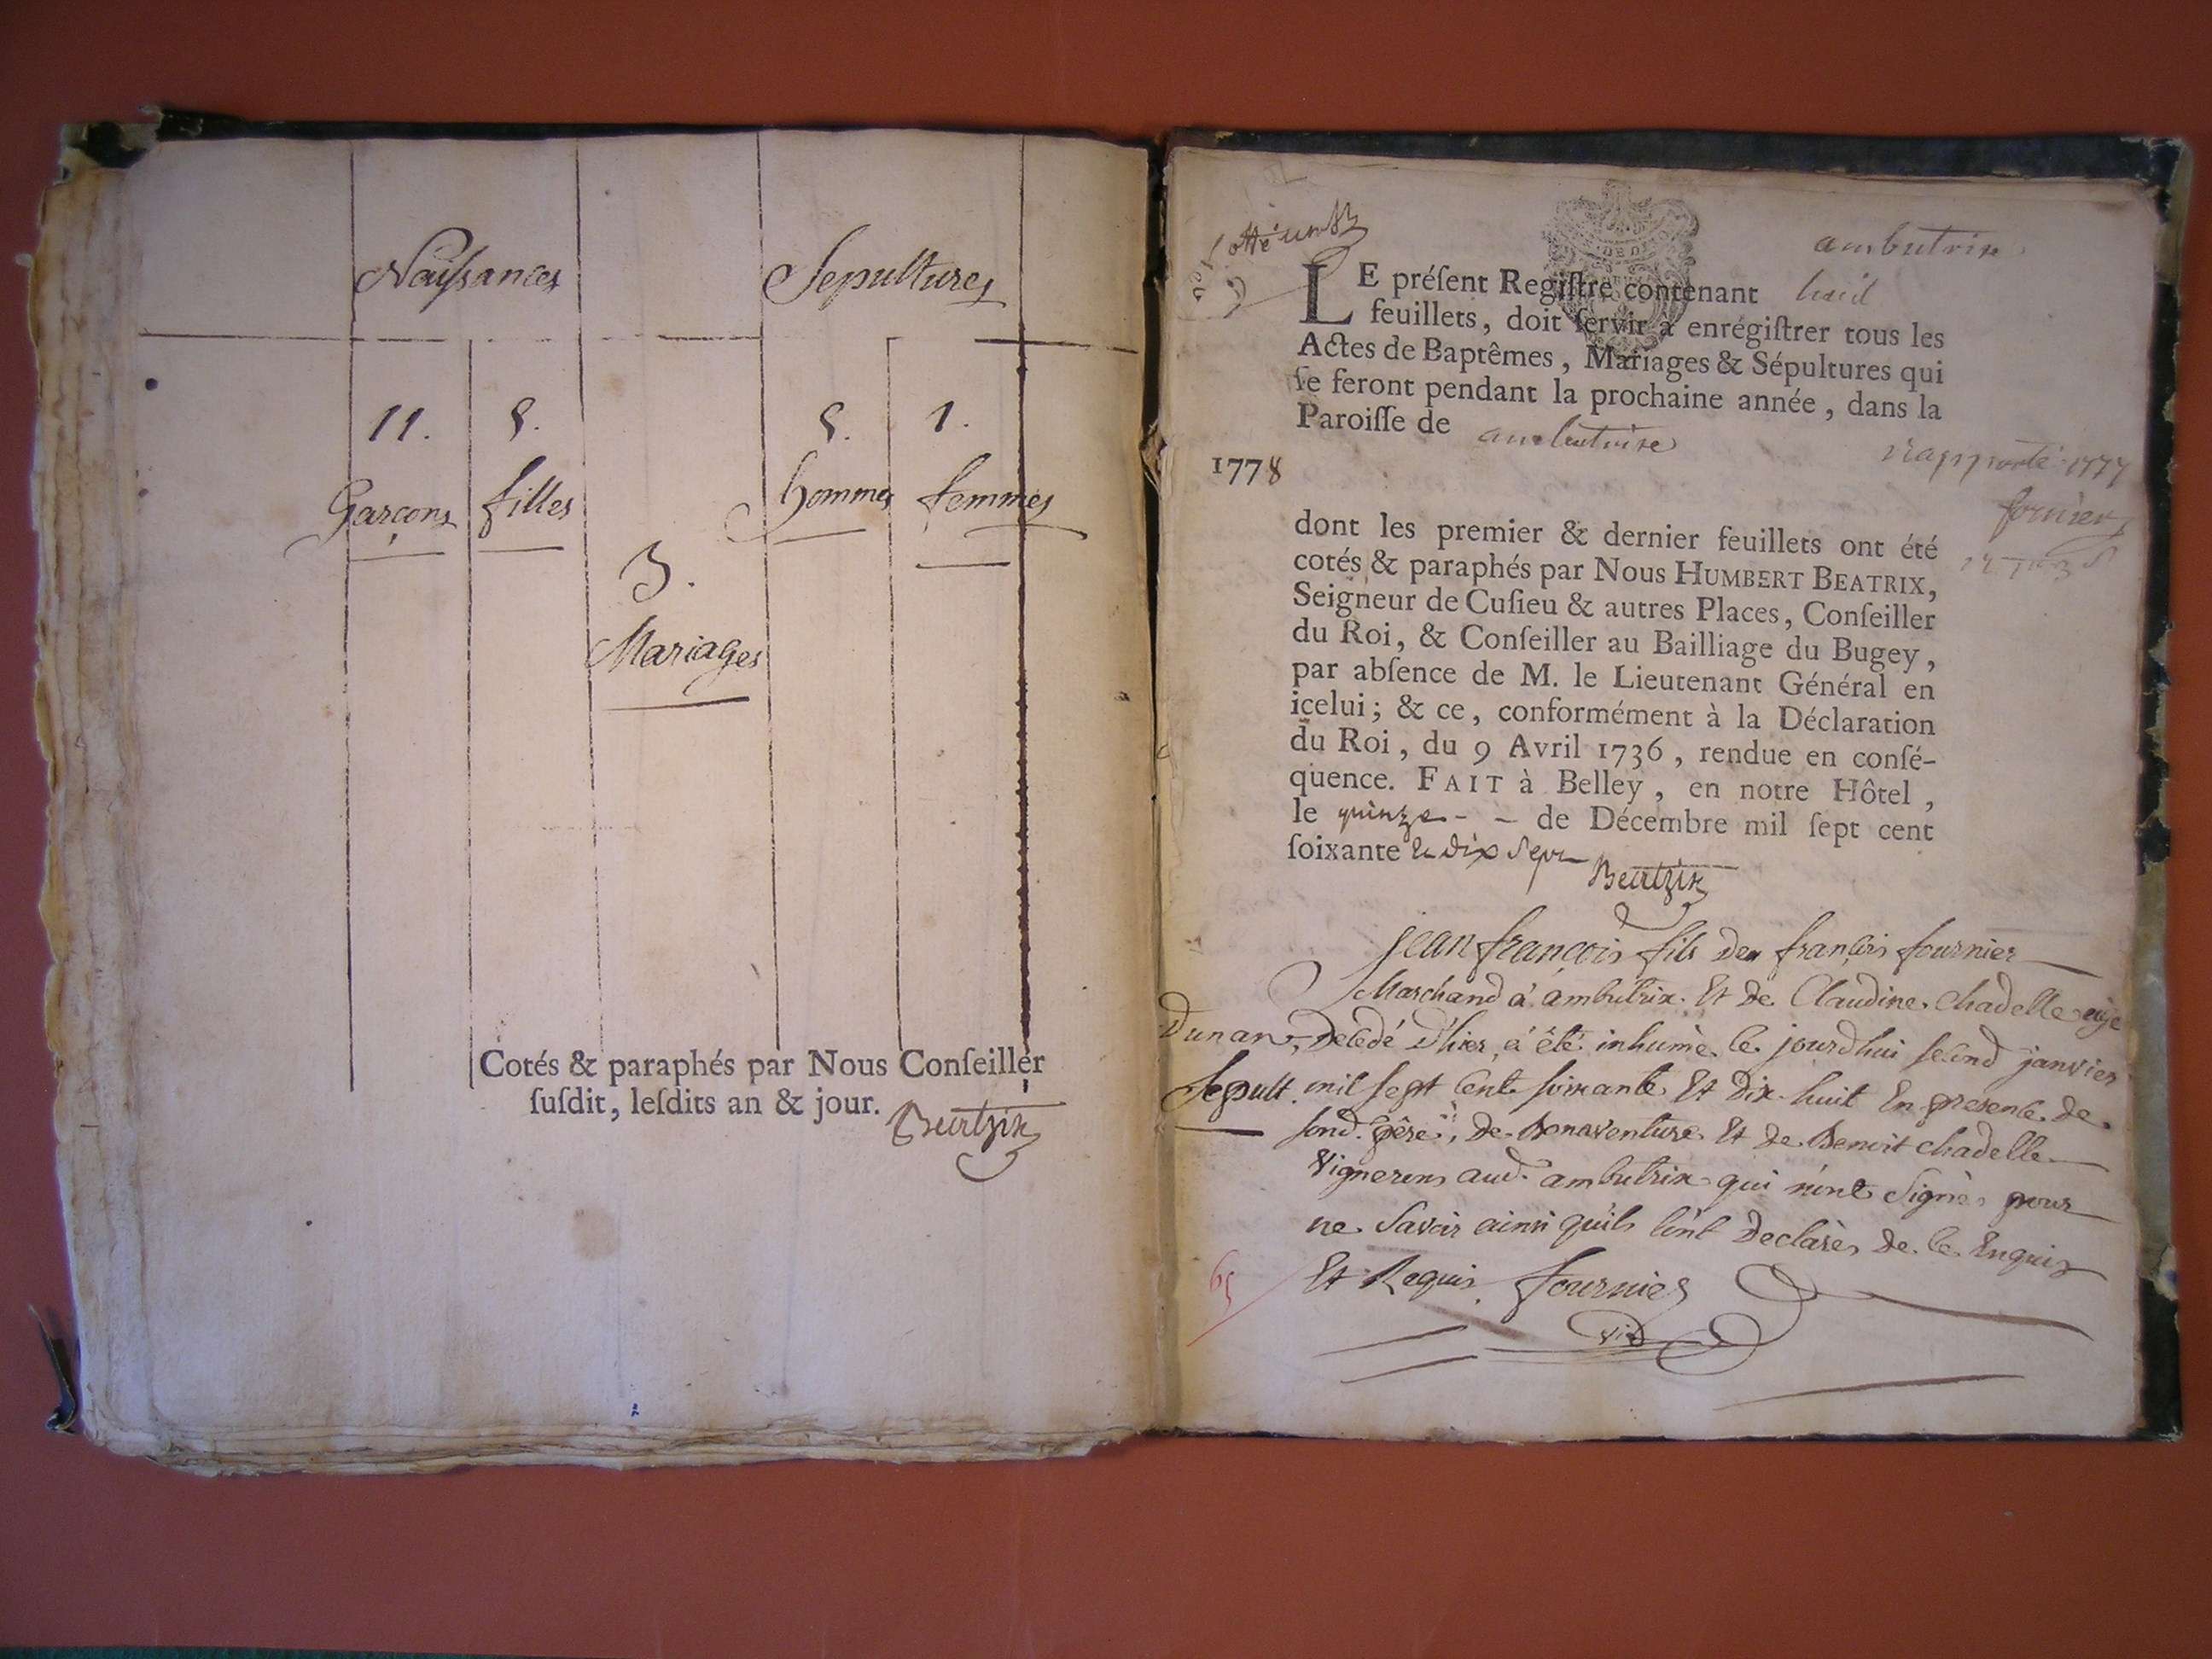 Naissances
Sepultures
11. 5.
5. 1.
Garçons filles
hommes femmes
3.
Mariages
Cotés & paraphés par Nous Conſeiller
ſuſdit, leſdits an & jour.
Beatrix
ambutrix
LE préſent Regiſtre contenant huit
feuillets, doit ſervir à enrégiſtrer tous les
Actes de Baptêmes, Mariages & Sépultures qui
ſe feront pendant la prochaine année, dans la
Paroiſſe de ambutrix
1778
rapporté 1777
dont les premier & dernier feuillets ont été
cotés & paraphés par Nous HUMBERT BEATRIX,
Seigneur de Cuſieu & autres Places, Conſeiller
du Roi, & Conſeiller au Bailliage du Bugey,
par abſence de M. le Lieutenant Général en
icelui; & ce, conformément à la Déclaration
du Roi, du 9 Avril 1736, rendue en conſé-
quence. FAIT à Belley, en notre Hôtel,
le quinze - - de Décembre mil ſept cent
ſoixante et dix Sept
Beatrix
jean françois fils de françois fournier
Marchand à ambutrix. Et de Claudine chadelle agé
Dun an, Decedé D'hier, a été inhumé ce jourdhui second janvier
Sepult. mil sept cent soixante Et Dix-huit En presence de
sond. père, De Bonaventure Et de Benoit chadelle
Vignerons aud. ambutrix qui n'ont Signés pour
ne Savoir ainsi qu'ils l'ont Declarés de ce Enquis
Et Requis. fournier
65